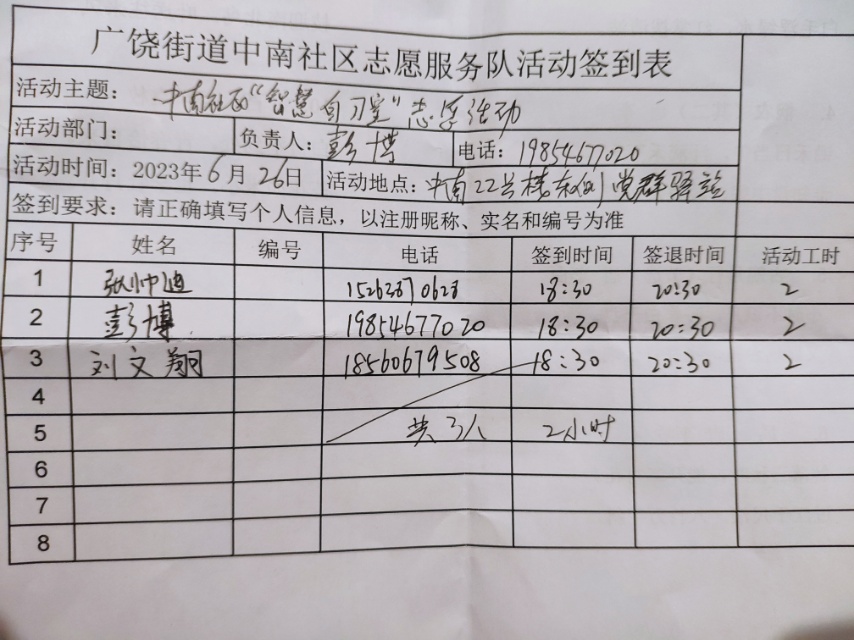 广饶街道中南社区志愿服务队活动签到表
活动主题： 中南社区“智慧自习室”志愿活动
活动部门： 负责人：彭博 电话：19854677020
活动时间：2023年6月26日 活动地点：中南22号楼东侧党群驿站
签到要求：请正确填写个人信息，以注册昵称、实名和编号为准
序号 姓名 编号 电话 签到时间 签退时间 活动工时
1 张帅迪 18:30 20:30 2
2 彭博 19854677020 18:30 20:30 2
3 刘文翔 18560679508 18:30 20:30 2
4
5 共3人 2小时
6
7
8